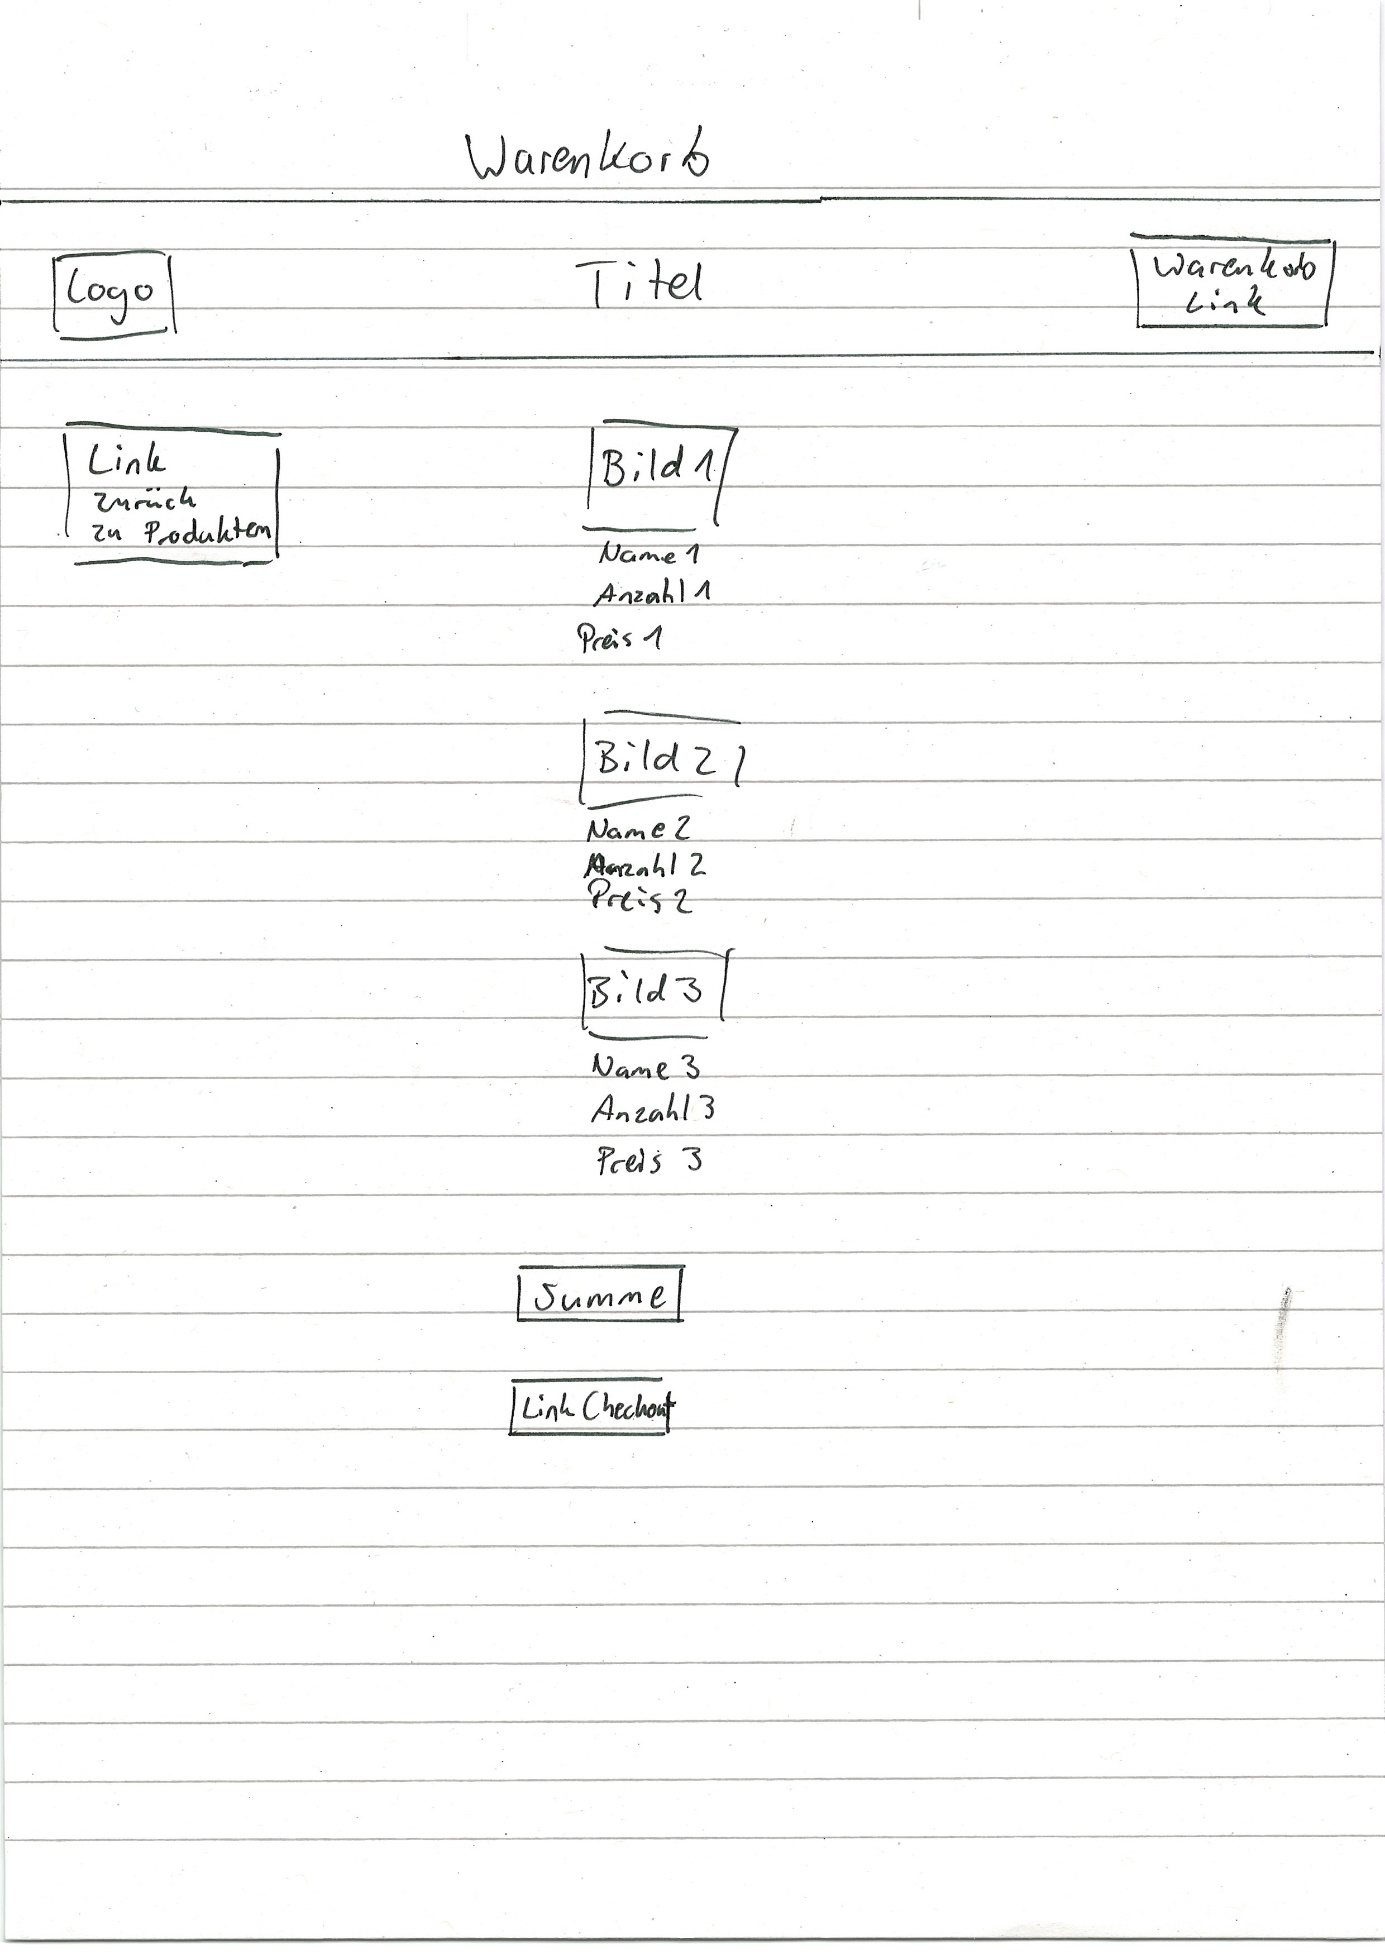 Warenkorb
Logo
Titel
Warenkorb
Link
Link
zurück
zu Produkten
Bild 1
Name 1
Anzahl 1
Preis 1
Bild 2
Name 2
Anzahl 2
Preis 2
Bild 3
Name 3
Anzahl 3
Preis 3
Summe
Link Checkout